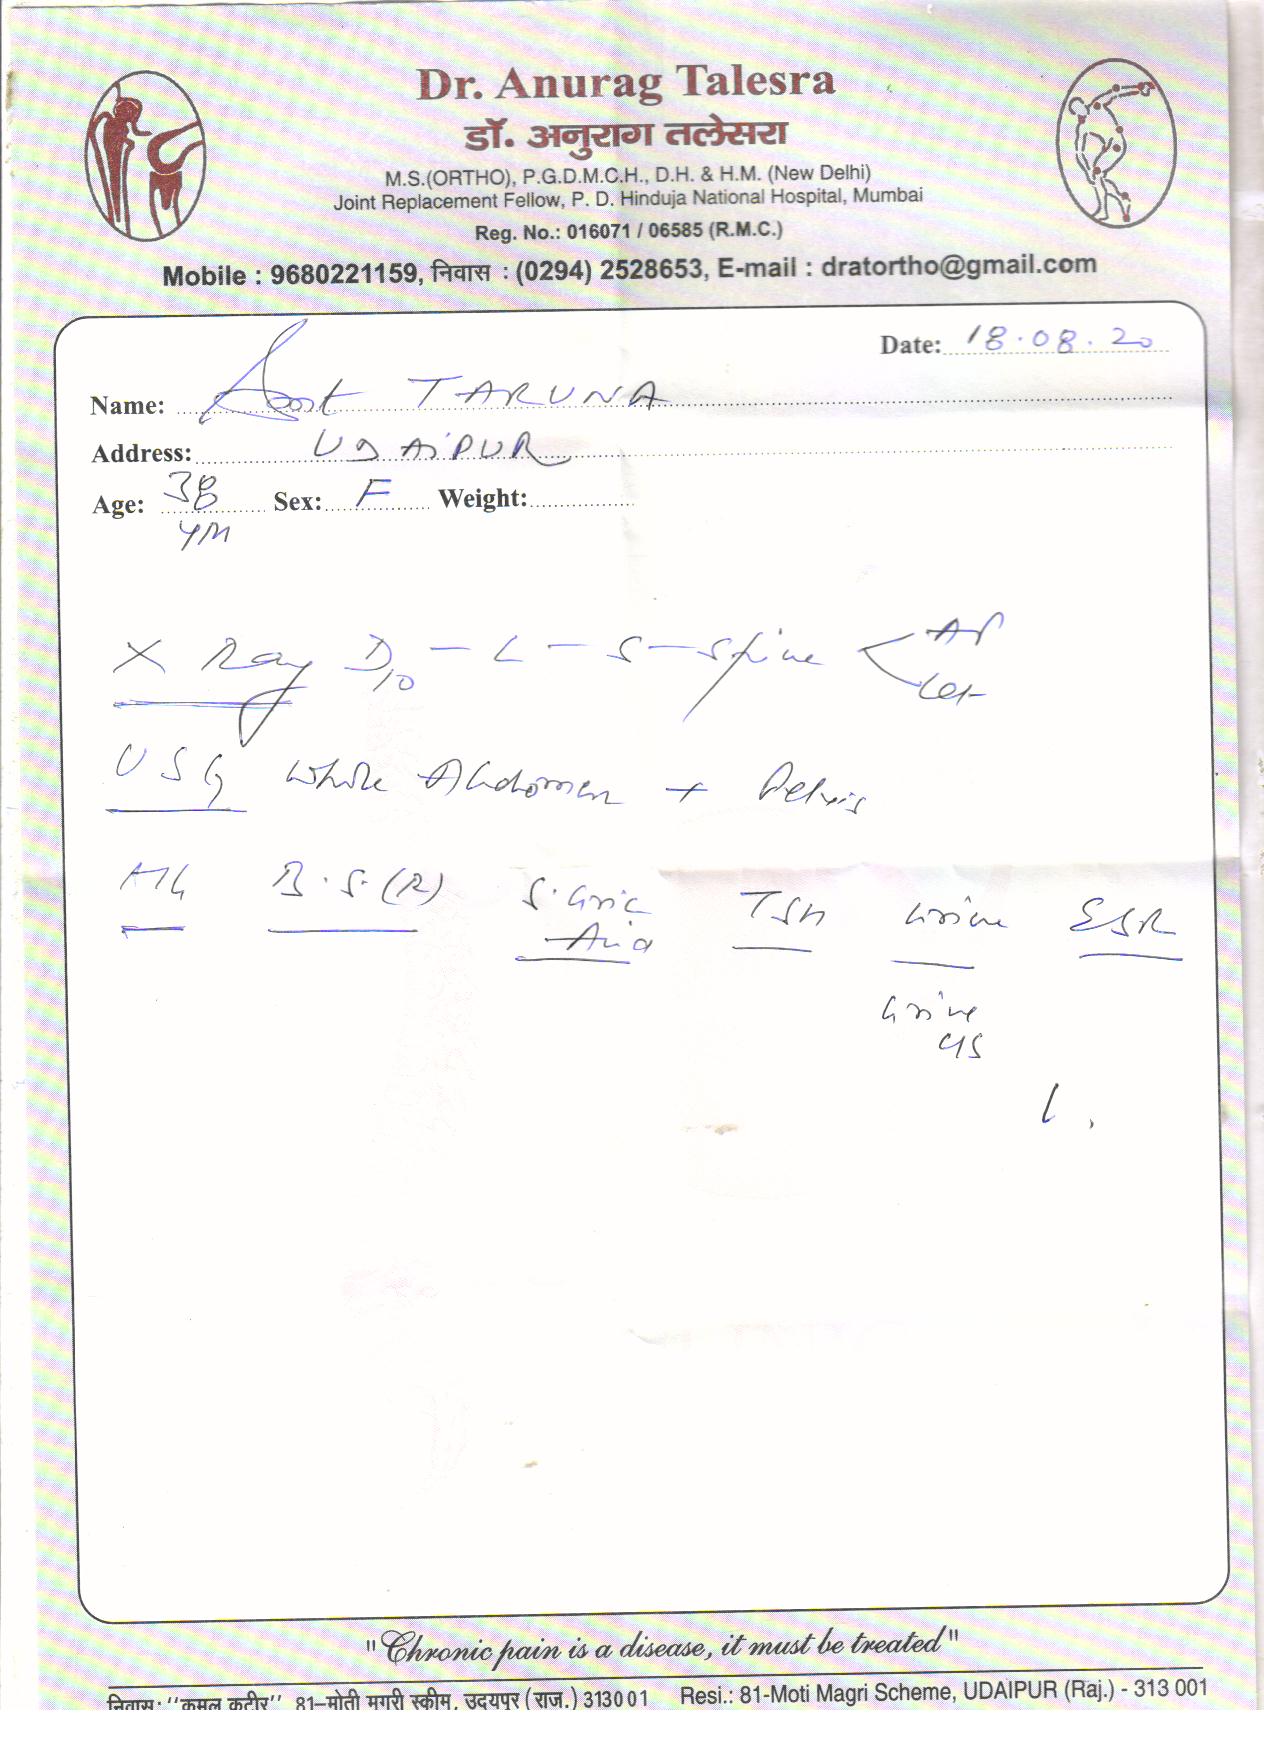 Dr. Anurag Talesra
डॉ. अनुराग तलेसरा
M.S.(ORTHO), P.G.D.M.C.H., D.H. & H.M. (New Delhi)
Joint Replacement Fellow, P. D. Hinduja National Hospital, Mumbai
Reg. No.: 016071 / 06585 (R.M.C.)
Mobile : 9680221159, निवास : (0294) 2528653, E-mail : dratortho@gmail.com
Date: 18.08.20
Name: TARUNA
Address: UDAIPUR
Age: 38 Sex: F Weight:
X Ray D10 - L - S - Spine < AP
Lat
USG Whole Abdomen + Pelvis
B.S.(R) S. Uric TSH Urine ESR
Acid
Urine
C/S
"Chronic pain is a disease, it must be treated"
निवास: "कमल कुटीर" 81–मोती मगरी स्कीम, उदयपुर (राज.) 313001 Resi.: 81-Moti Magri Scheme, UDAIPUR (Raj.) - 313 001